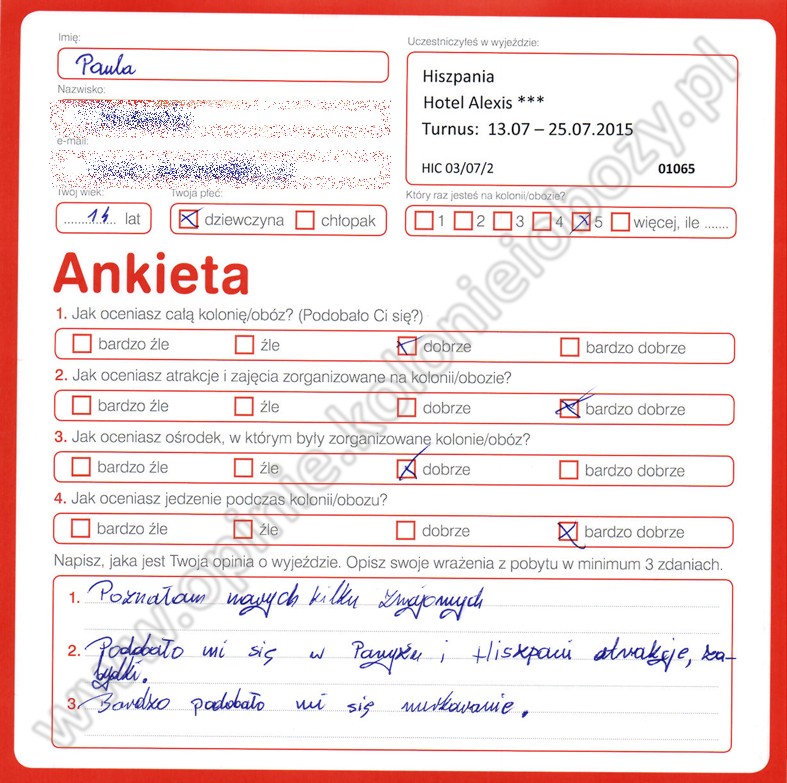 Imię:
Paula
Nazwisko:
e-mail:
Twój wiek:
14 lat
Twoja płeć:
dziewczyna chłopak
Uczestniczyłeś w wyjeździe:
Hiszpania
Hotel Alexis ***
Turnus: 13.07 – 25.07.2015
HIC 03/07/2 01065
Który raz jesteś na kolonii/obozie?
1 2 3 4 5 więcej, ile .......
Ankieta
1. Jak oceniasz całą kolonię/obóz? (Podobało Ci się?)
bardzo źle źle dobrze bardzo dobrze
2. Jak oceniasz atrakcje i zajęcia zorganizowane na kolonii/obozie?
bardzo źle źle dobrze bardzo dobrze
3. Jak oceniasz ośrodek, w którym były zorganizowane kolonie/obóz?
bardzo źle źle dobrze bardzo dobrze
4. Jak oceniasz jedzenie podczas kolonii/obozu?
bardzo źle źle dobrze bardzo dobrze
Napisz, jaka jest Twoja opinia o wyjeździe. Opisz swoje wrażenia z pobytu w minimum 3 zdaniach.
1. Poznałam nowych kilku znajomych
2. Podobało mi się w Paryżu i Hiszpani atrakcje, za-
bytki.
3. Bardzo podobało mi się nurkowanie.
www.opinie.kolonieiobozy.pl